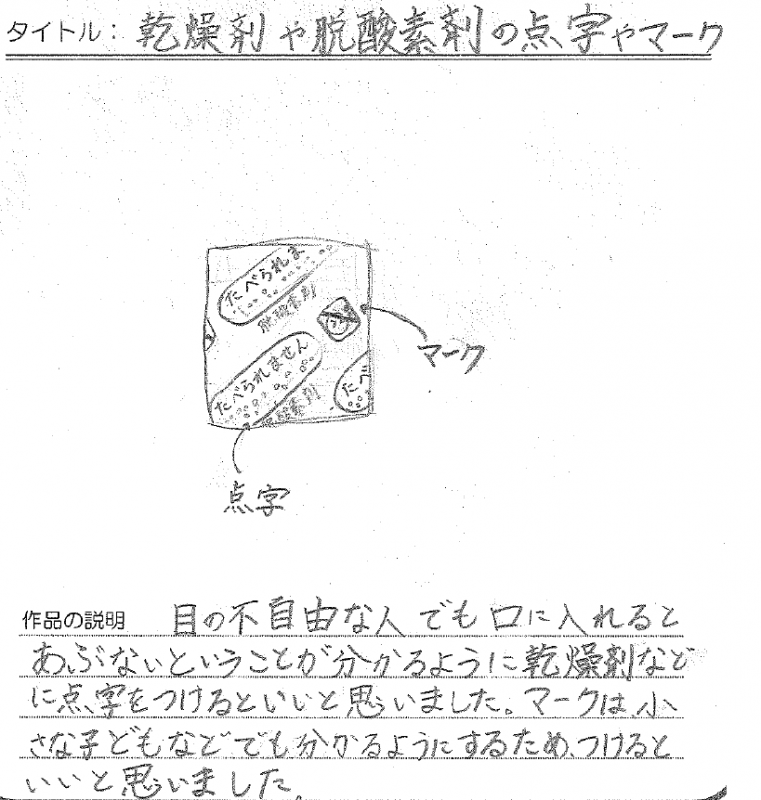 タイトル： 乾燥剤や脱酸素剤の点字やマーク
たべられま
脱酸素剤
マーク
たべられません
脱酸素剤
たべ
点字
作品の説明 目の不自由な人でも口に入れると
あぶないということが分かるように乾燥剤など
に点字をつけるといいと思いました。マークは、小
さな子どもなどでも分かるようにするため、つけると
いいと思いました。